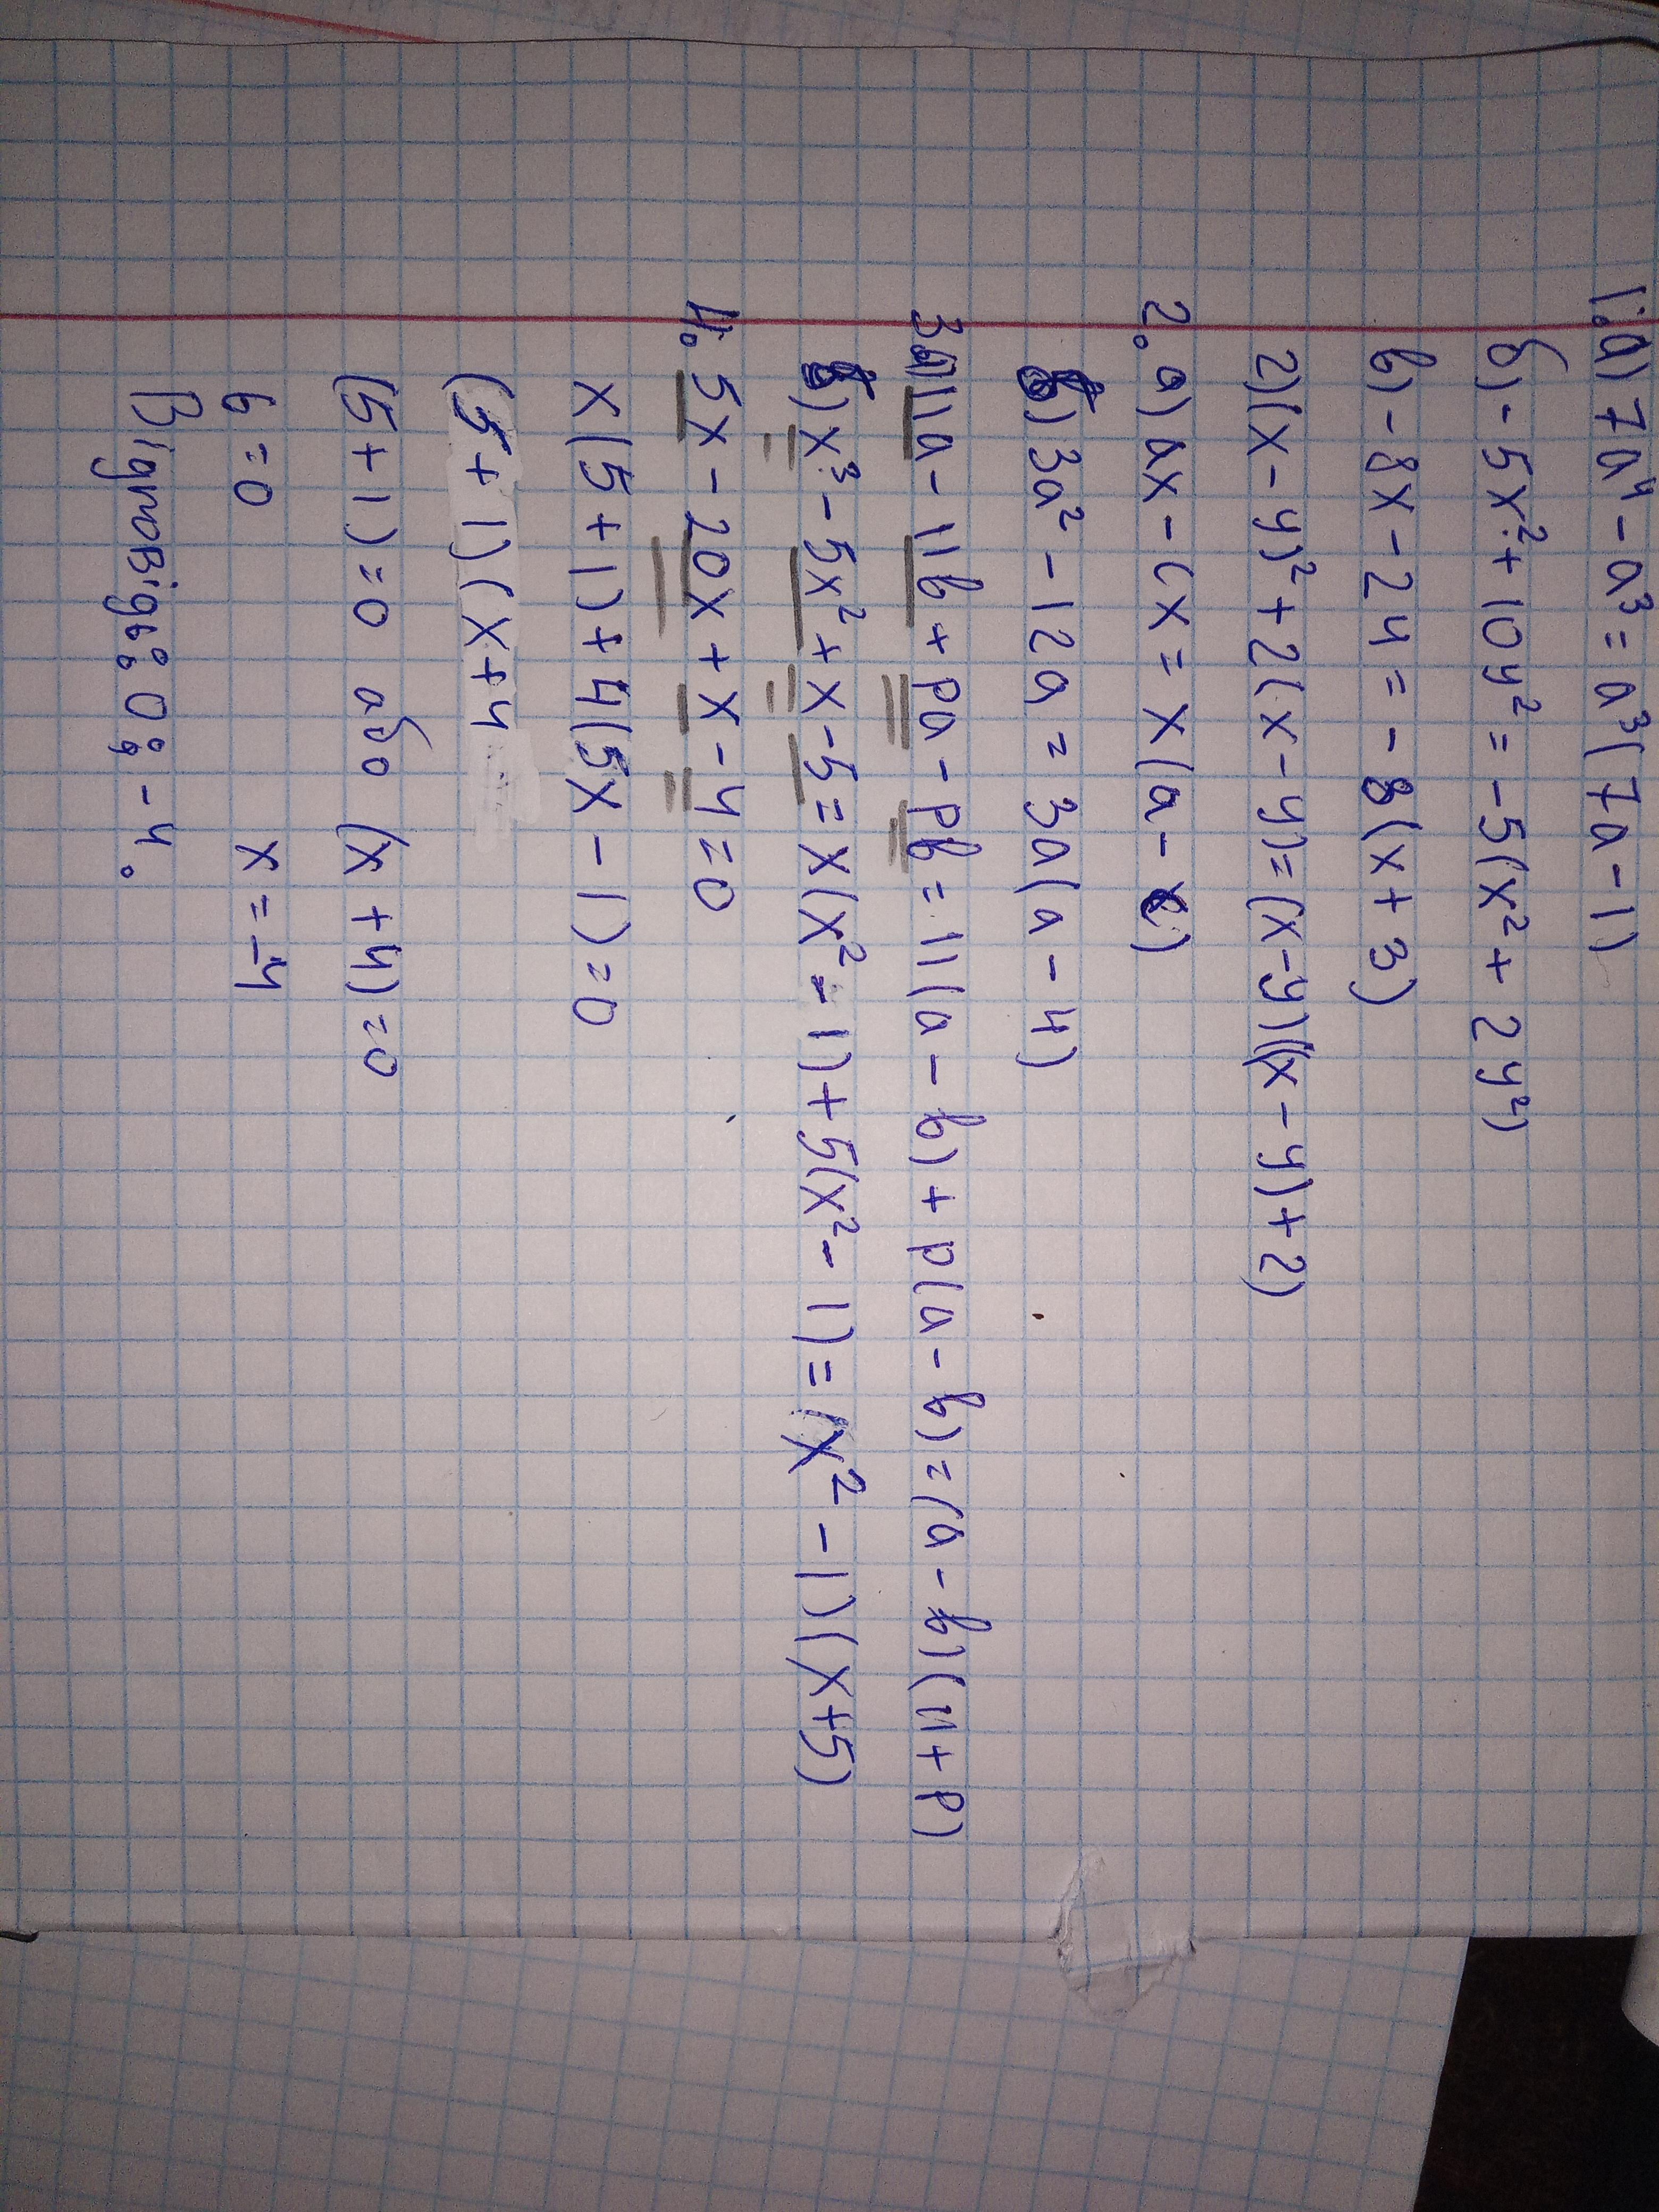 1. а) 7a⁴ - a³ = a³(7a - 1)
б) - 5x² + 10y² = -5(x² + 2y²)
в) - 8x - 24 = - 8(x + 3)
2)(x - y)² + 2(x - y) = (x - y)((x - y) + 2)
2. а) ax - cx = x(a - c)
б) 3a² - 12a = 3a(a - 4)
3. а) 11a - 11b + pa - pb = 11(a - b) + p(a - b) = (a - b)(11 + p)
б) x³ - 5x² + x - 5 = x(x² - 1) + 5(x² - 1) = (x² - 1)(x + 5)
4. 5x - 20x + x - 4 = 0
x(5 + 1) + 4(5x - 1) = 0
(5 + 1)(x + 4
(5 + 1) = 0 або (x + 4) = 0
6 = 0 x = -4
Відповідь: 0; - 4.